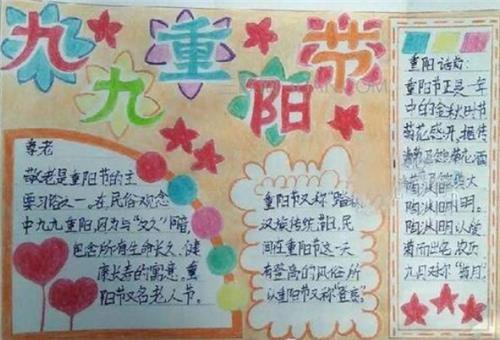 九九重阳节
尊老
敬老是重阳节的主
要习俗之一,在民俗观念
中九九重阳,因为与“久久”同音
包含所有生命长久、健
康长寿的寓意。重
阳节又名老人节。
重阳节又称“踏秋
汉族传统节日,民
间在重阳节这一天
有登高的风俗所
以重阳节又称“登高”。
重阳话菊:
重阳节正是一年
中的金秋时节
菊花盛开,据传
赏菊
陶渊明。
陶渊明以爱
菊而出名,农历
九月又称“菊月”